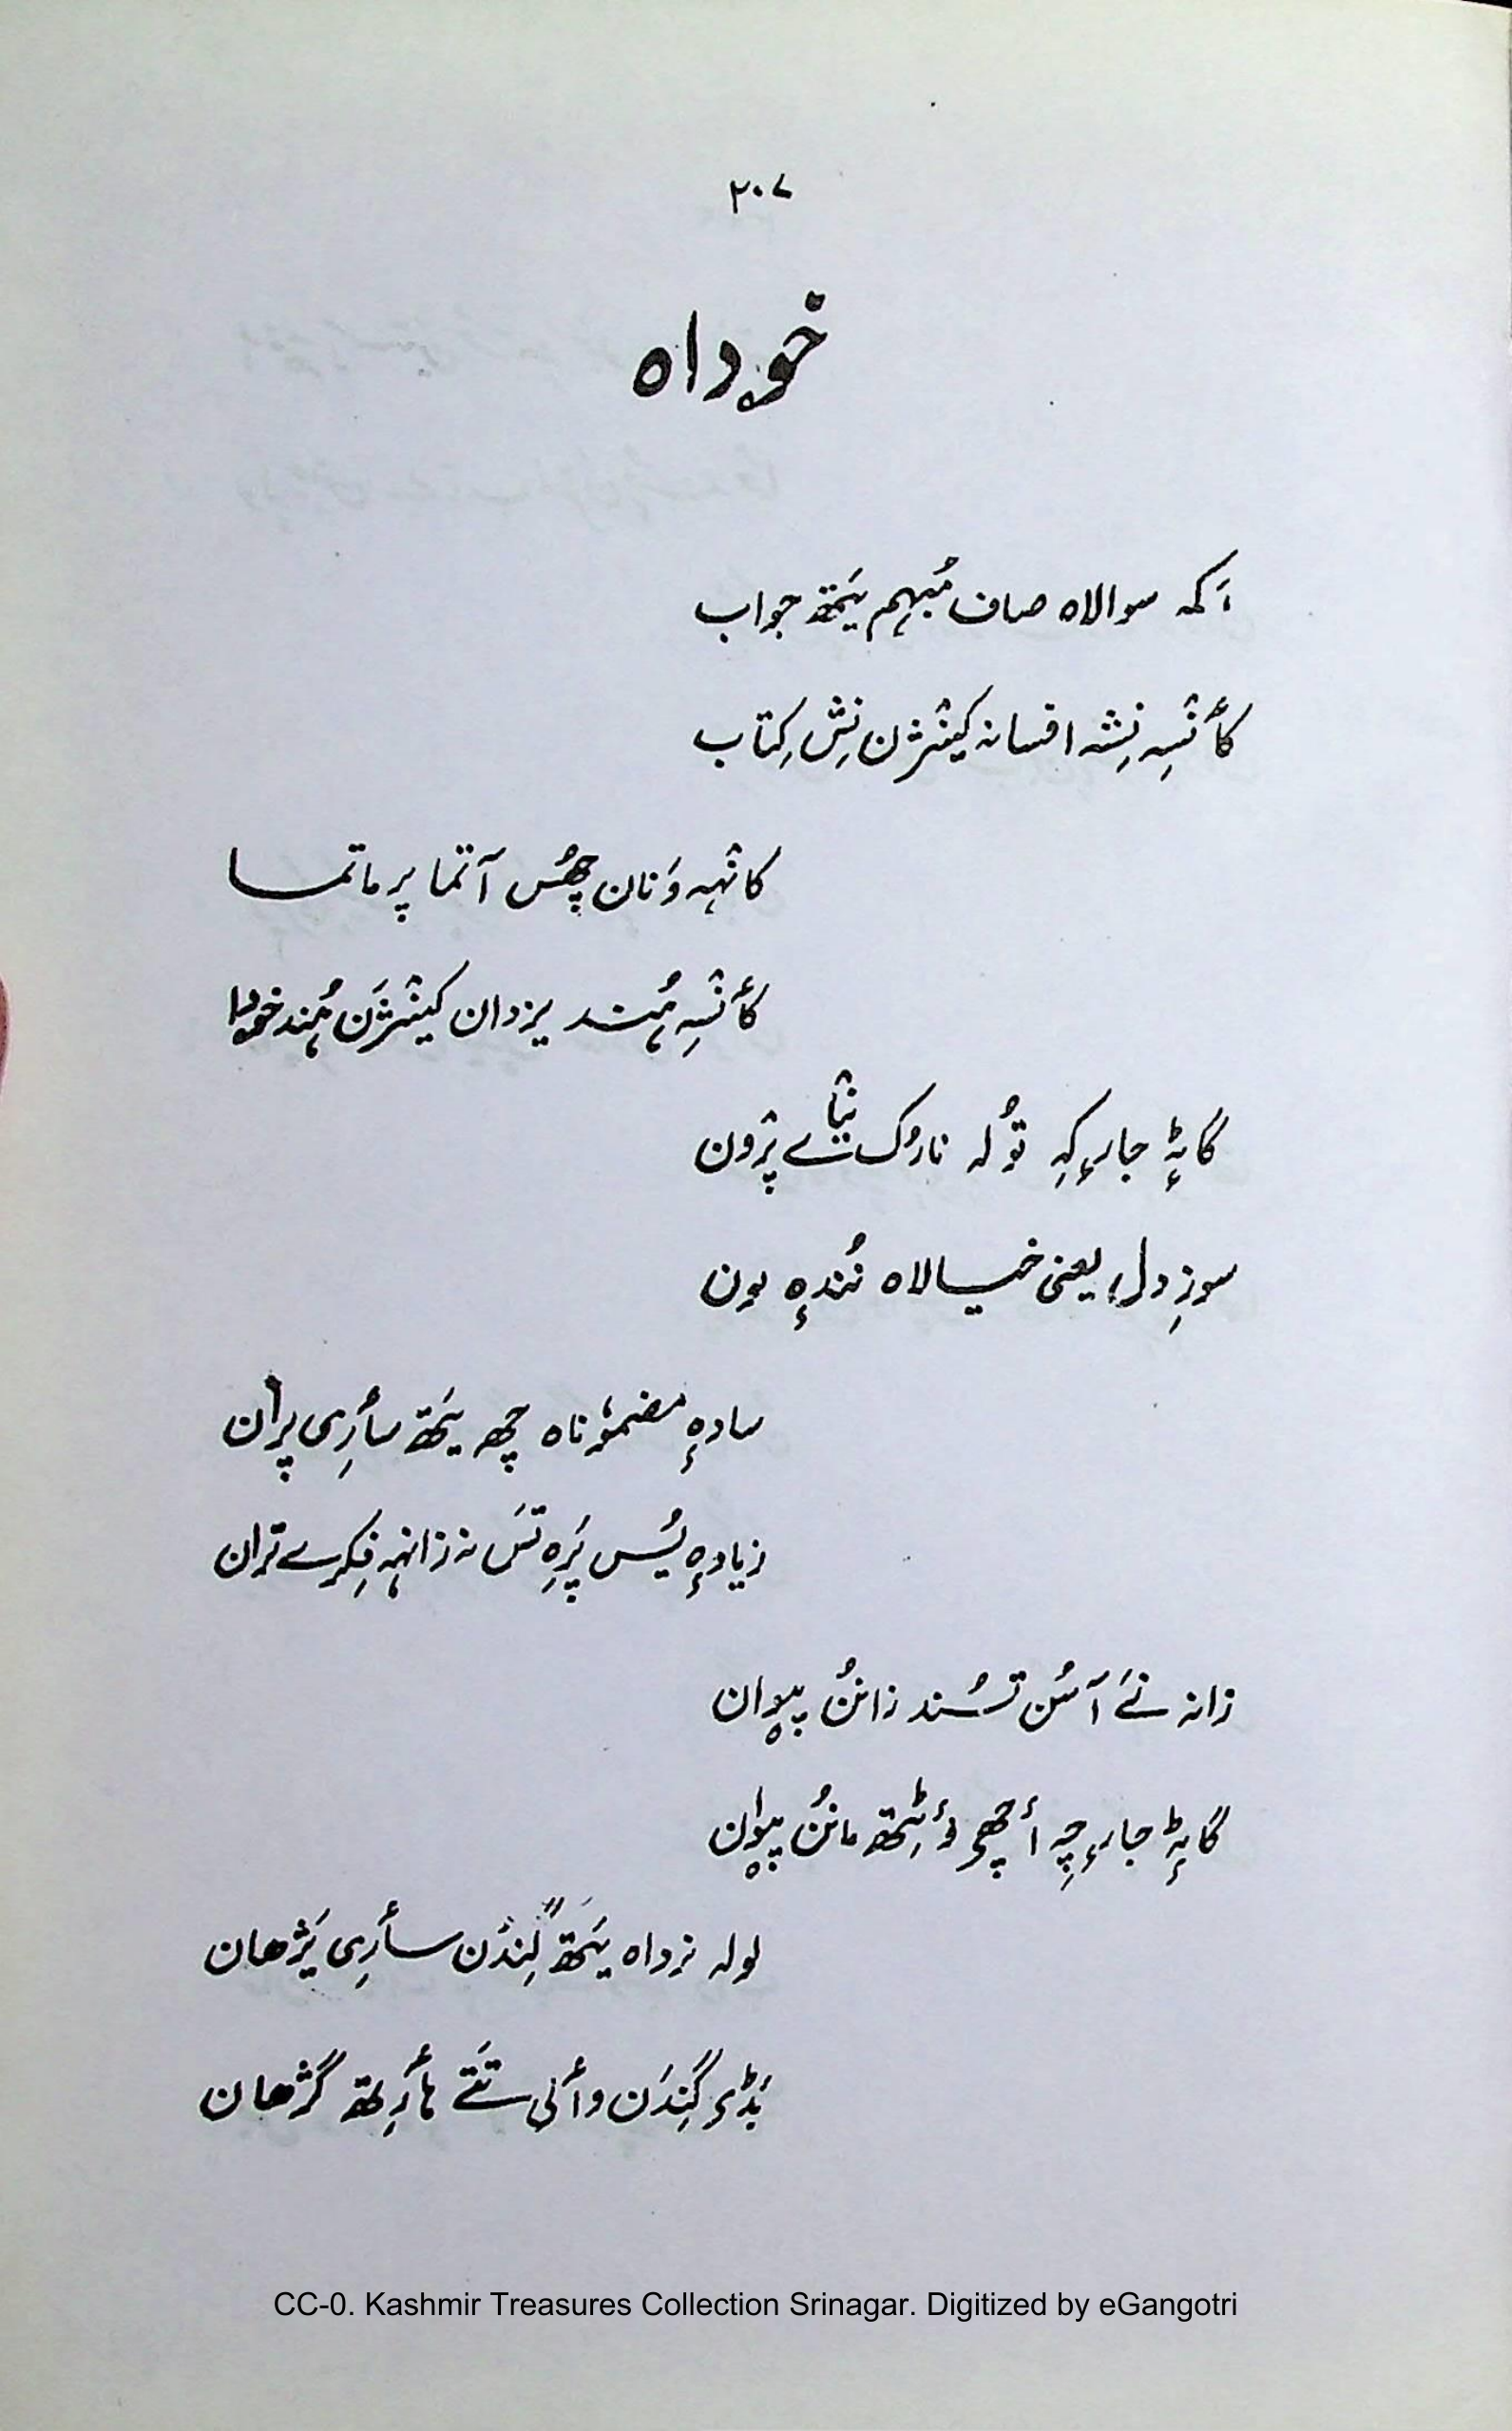 ۲۰۷
خوداہ
اَکہ سوالاہ صاف مُبہم یَتھ جواب
کأنٛسہِ نِشہ افسانہ کینٛژن نِش کِتاب
کانٛہہ وَنان چھُس آتما پرماتما
کأنٛسہِ ہُند یزدان کینٛژَن ہُند خودا
گاٹہٕ جارٕکہِ تُولہ نارُک تیٛاے ژٕون
سوزِ دل، یعنی خیالاہ نُندہٕ بون
سادہٕ مضموٗناہ چھ یَتھ سأری پران
زیادہٕ یُس پَرِہ تَس نہ زانٛہہ فِکرے تران
زانہ نَے آسُن تسُند زانُن پیوان
گاٹہٕ جارٕچہِ أچھو وُٹِتھ مانُن پیوان
لولہ نرداہ یَتھ گِندُن سأری یَژھان
بَڈۍ گِنَدن وألی تَتے ہأرِتھ گژھان
CC-0. Kashmir Treasures Collection Srinagar. Digitized by eGangotri